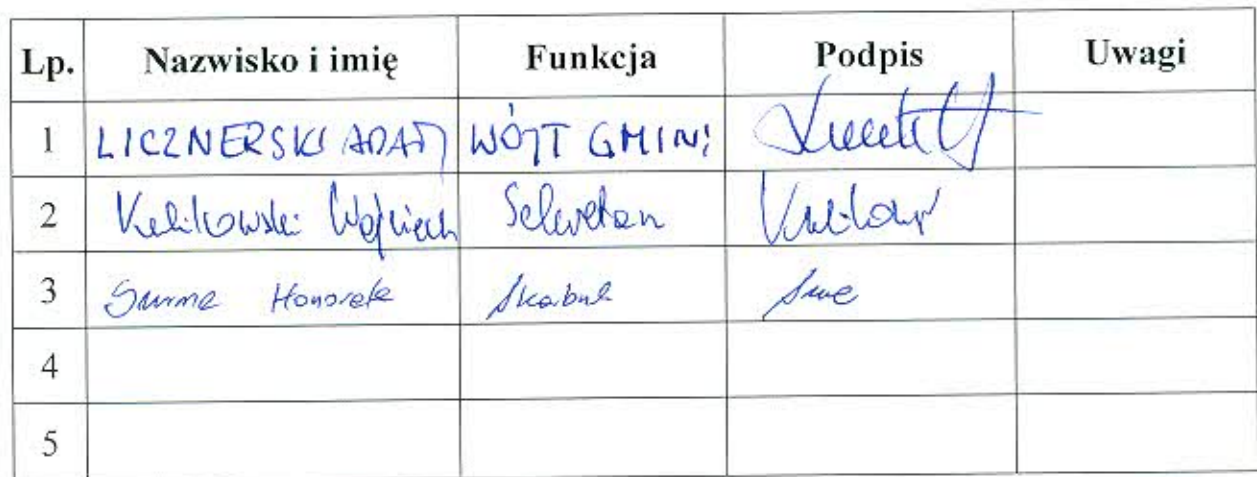 Lp. Nazwisko i imię Funkcja Podpis Uwagi
1 LICZNERSKI ADAM WÓJT GMINY
2 Wojciech Sekretarz
3 Honorata Skarbnik
4
5